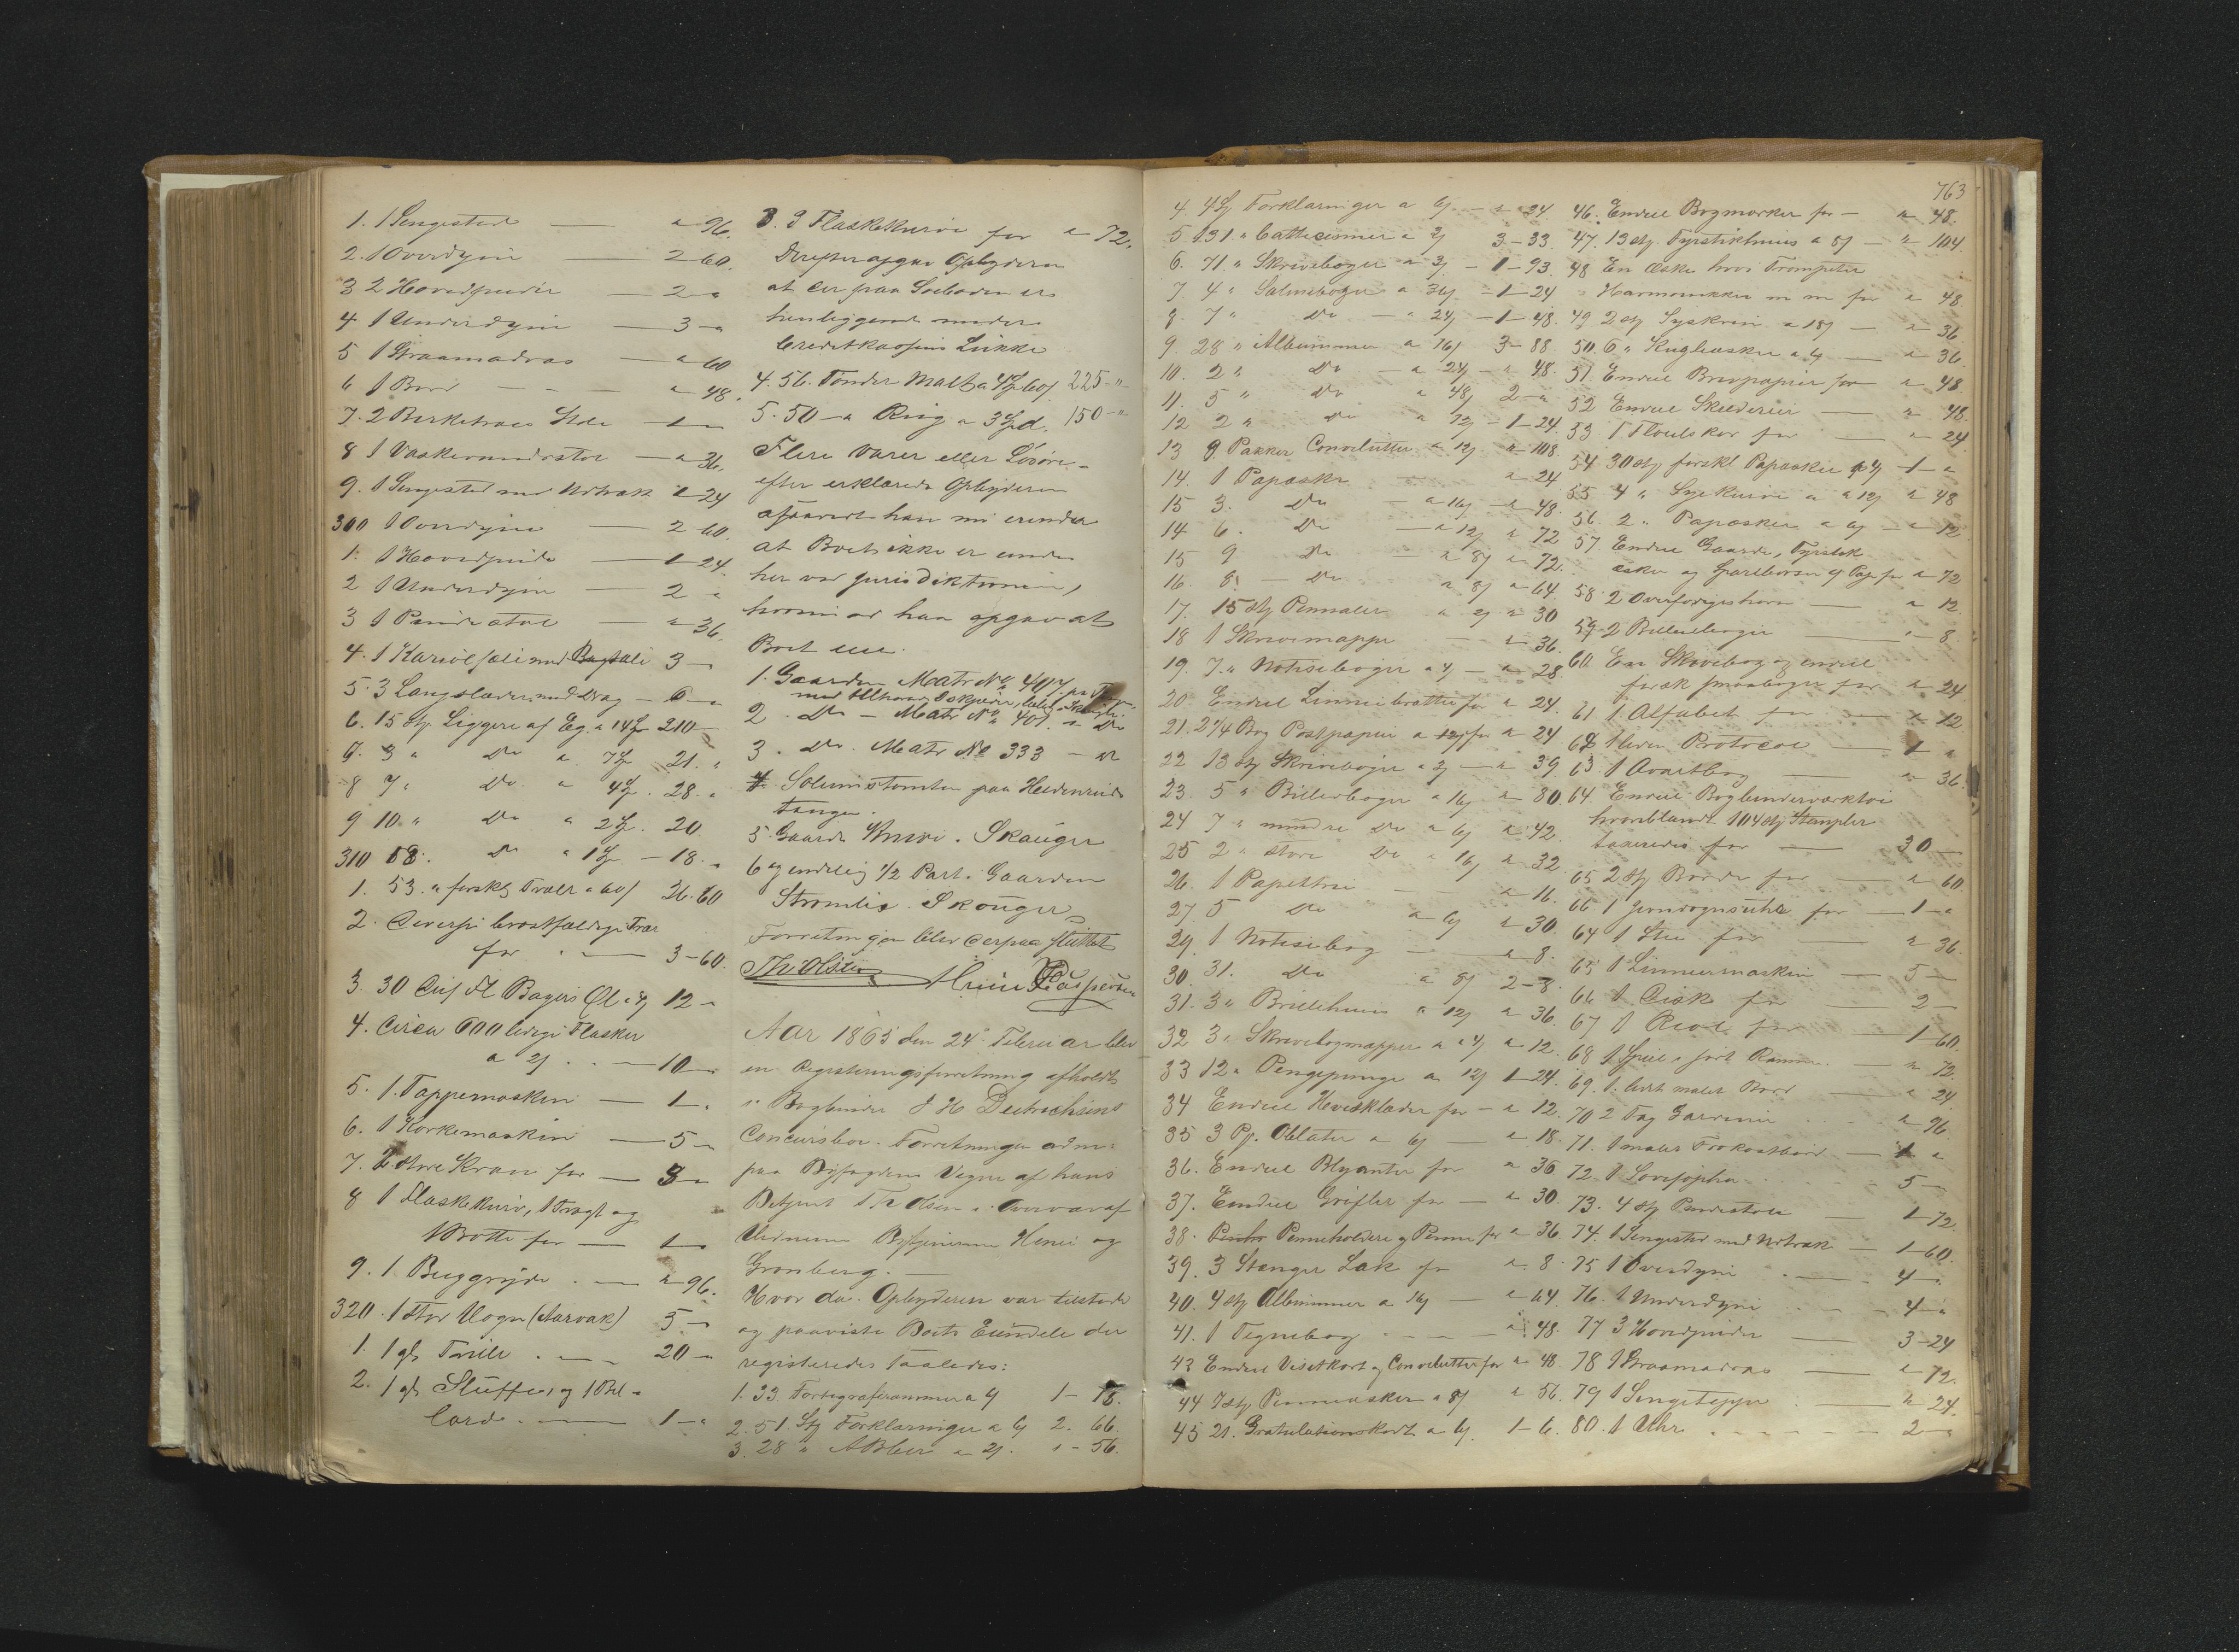 1. 1 Sengested — " 96.
2. 1 Overdyne — 2 60.
3 2 Hovedpuder — 2 "
4 1 Underdyne — 3 "
5 1 Straamadras — " 60
6 1 Bord — — — " 48.
7. 2 Birketræes Stole — 1 —
8 1 Vaskevandsstol — " 36.
9. 1 Sengested med Udtræk " 24
300 1 Overdyne — 2 60.
1. 1 Hovedpude — 1 24.
2 1 Underdyne — 2 "
3 1 Pindestol — " 36.
4. 1 Kariolsæle med 3 —
5. 3 Langslæder med Drag — 6 — "
6. 15 Stk Liggere af Eg a 14 210 —
7. 3 " Do a 7 21. "
8 7 " Do " 4 . 28. "
9 10. " Do " 2 . 20
310 18. Do " 1 — 18. "
1. 53. " forskj Træer a 60 26. 60
2. Diverse brøstfældige Træer
for — 3 — 60.
3. 30 Dus fl Bayers Øl a 12 — "
4. Circa 600 ledige Flasker
a 2 . — 10 —
5. 1. Tappemaskin — 1 — "
6. 1 Korkemaskin — 5 — "
7. 2 store Kran for — 3 —
8 1 Flaskekurv, 1 Tragt og
1 Bøtte for — 1 —
9. 1 Bryggryde . — " 96.
320. 1 stor Vogn (Aarvak) 5 —
1. 1 gl. Trille . — 20 — "
2. 1 gl. Sluffe og 1 Bil-
lard. — 1 — "
3. 3 Flaskekurve for " 72.
Derefter opgav Opbyderen
at der paa Søeboden er
henliggende under
Creditkassens Lukke
4. 56. Tønder Malt a 4 60 225 — "
5. 50 — a Rug a 3 d. 150 — "
Flere Varer eller Løsøre
efter erklærede Opbyderen
han nu erindre
at Boets ikke er
her var jurisdiktionen,
hvorimod han opgav at
Boet eier.
1. Gaarden Matr No 401.
2 Do — Matr No 401.
3. Do. Matr No 333 — a
4 paa
tangen.
5. Gaarde . Skauger
6 og endelig 1/2 Part i Gaarden
Strømlie . Skouger
Forretningen blev derpaa sluttet
Th. Olsen
Aar 1865 den 24de Februar blev
en Registreringsforretning afholdt
i Bogbinder J H Dietrichsens
Concursbo. Forretningen adm:
paa Byfogdens Vegne af hans
Betjent Th Olsen i Overvær af
Vidnerne Bytjenerne Henri og
Grønberg. —
Hvor da. Opbyderen var tilstede
og paaviste Boets Eiendele der
registeredes saaledes:
1. 33. Fotografirammer a 1 — 18.
2. 51. Stk Forklaringer a 6 2. 66.
3. 28 " ABCer a 2 . " — 56.
763
4. 4 Stk Forklaringer a 6 — " 24.
5 131. " Cattecismer a 3 — 33.
6. 71. " Skrivebøger a 3 — 1 — 93.
7. 4 " Salmebøger a 36 — 1 — 24
8. 7 " Do — " 24 — 1 — 48.
9. 28 " Albummer a 16 3 — 88.
10. 2 " Do — a 24 — " 48.
11. 5 " Do " 48 2 — "
12 2 " Do " 72 — 1 — 24.
13 9 Pakker Convolutter a 12 " 108.
14. 1 Papæske — " 24
15 3. Do — a 16 — " 48.
14 6. Do — a 12 " 72
15 9 Do — a 8 " 72.
16. 8. — Do a 8 " 64.
17. 15 Stk Pennaler a 2 " 30
18 1 Skrivemappe — " 36.
19. 7 " Notisebøger a 4 — " 28
20. Endeel Linnebrætter for " 24.
21. 2 1/4 Bog Postpapir a for " 24
22 13 Stk Skrivebøger a 3 — " 39
23. 5 " Billedbøger a 16 " 80
24 7 " mindre Do a 6 " 42.
25 2 " store Do " 16 " 32
26. 1 Papetteri — " 16.
27 5 Do a 6 " 30.
29. 1 Notisebog — " 8.
30. 31. Do a 8 2 — 8.
31. 3 " Brillehuus a 12 " 36.
32 3 " Skrivebogmapper a 4 " 12.
33 12 " Pengepunge a 12 1 — 24.
34 Endeel for — " 12.
35 3 Pk. Oblater a 6 — " 18.
36. Endeel Blyanter for " 36
37. Endeel Grifler for — " 30.
38. Penneholdere og Penne for " 36
39. 3 Stænger Lak for " 8.
40. 4 Stk Albummer a 16 — " 64.
41. 1 Tegnebog — — — " 48.
43 Endeel Visitkort og Convolutter for " 48
44 7 Stk Penneæsker a 8 " 56.
45 21. Gratulationskort a 6 . 1 — 6.
46. Endeel Bogmærker for — " 48.
47. 13 Stk Fyrstikhuus a 8 — " 104.
48 En Æske hvori Trompeter
Harmonikker m m for " 48
49 2 Stk Syskrin a 18 — " 36.
50. 6 " Kugleæsker a 6 — " 36
51. Endeel Brevpapir for " 48
52 Endeel Skilderier — " 48.
53 1 for — " 24.
54 30 Stk forskl Papæsker 1 — "
55 4 " Syekurve a 12 " 48
56. 2 " Papæsker a 6 — " 12.
57. Endeel Gaarde, Fyrstik
æsker og Sparebøsser af Pap for " 72
58. 2 — " 12.
59. 2 Billedbøger — " 8.
60. En Skrivebog og endeel
forsk smaabøger for " 24
61 1. Alfabet for — " 12
62 1 liden Protocol — 1 "
63. 1 Qvartbog — " 36.
64. Endeel Bogbinderværktøi
hvoriblandt 104 Stk Stempler
taxeredes for — 30 —
65 2 Stk Borde for — " 60.
66 1 for — 1 — "
64 1 Stie for — " 36.
65 1 Linneermaskin — 5 —
66 1 Disk for — 2 —
67 1 Reol for — 1 — 60.
68 1 Speil i sort Ramme. — " 72.
69. 1. lidt malet Bord — " 24.
70 2 Fag Gardiner . . . . " 96
71. 1 malet Frokostbord — 1 "
72. 1 Sovesopha . . . . 5 —
73. 4 Stk Pindestole — 1 — 72.
74. 1 Sengested med Udtræk — 1 — 60.
75 1 Overdyne . — . 4 — "
76. 1 Underdyne . . — — 4 — "
77 3 Hovedpuder — 3 — 24
78 1 Straamadras — " 72.
79 1 Sengeteppe . — " 24.
80. 1 Uhr . . — — — 2 — "